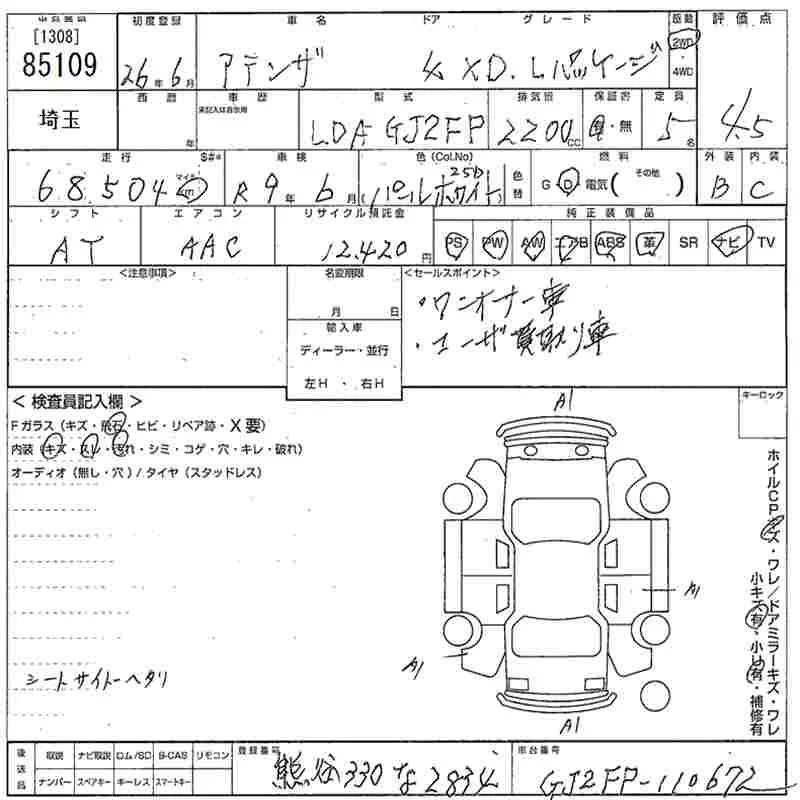 [1308]
85109
初度登録 車名 ドア グレード 駆動 評価点
26年6月 アテンザ 4 XD.Lパッケージ 2WD・4WD
埼玉
西暦 車歴 型式 排気量 保証書 定員
年 未記入は自家用 LDA GJ2FP 2200cc 有・無 5名 4.5
走行 $#* 車検 色(Col.No) 色替 燃料 外装 内装
68,504 マイル km R9年6月 25D (パールホワイト) G D 電気 その他( ) B C
シフト エアコン リサイクル預託金 純正装備品
AT AAC 12,420円 PS PW AW エアB ABS 革 SR ナビ TV
<注意事項> 名変期限 <セールスポイント>
月 日
輸入車
ディーラー・並行
左H・右H
・ワンオーナー車
・ユーザー買取り車
<検査員記入欄> キーロック
Fガラス (キズ・飛石・ヒビ・リペア跡・X要)
内装 (キズ・スレ・汚れ・シミ・コゲ・穴・キレ・破れ)
オーディオ (無し・穴) / タイヤ (スタッドレス)
A1
A1
A1
A1
ホイルCPキズ・ワレ/ドアミラーキズ・ワレ
小キズ有・小凹有・補修有
シートサイドヘタリ
後送品 取説 ナビ取説 ロム/SD B-CAS リモコン 登録番号 車台番号
ナンバー スペアキー キーレス スマートキー 熊谷 330 な 2834 GJ2FP-110672